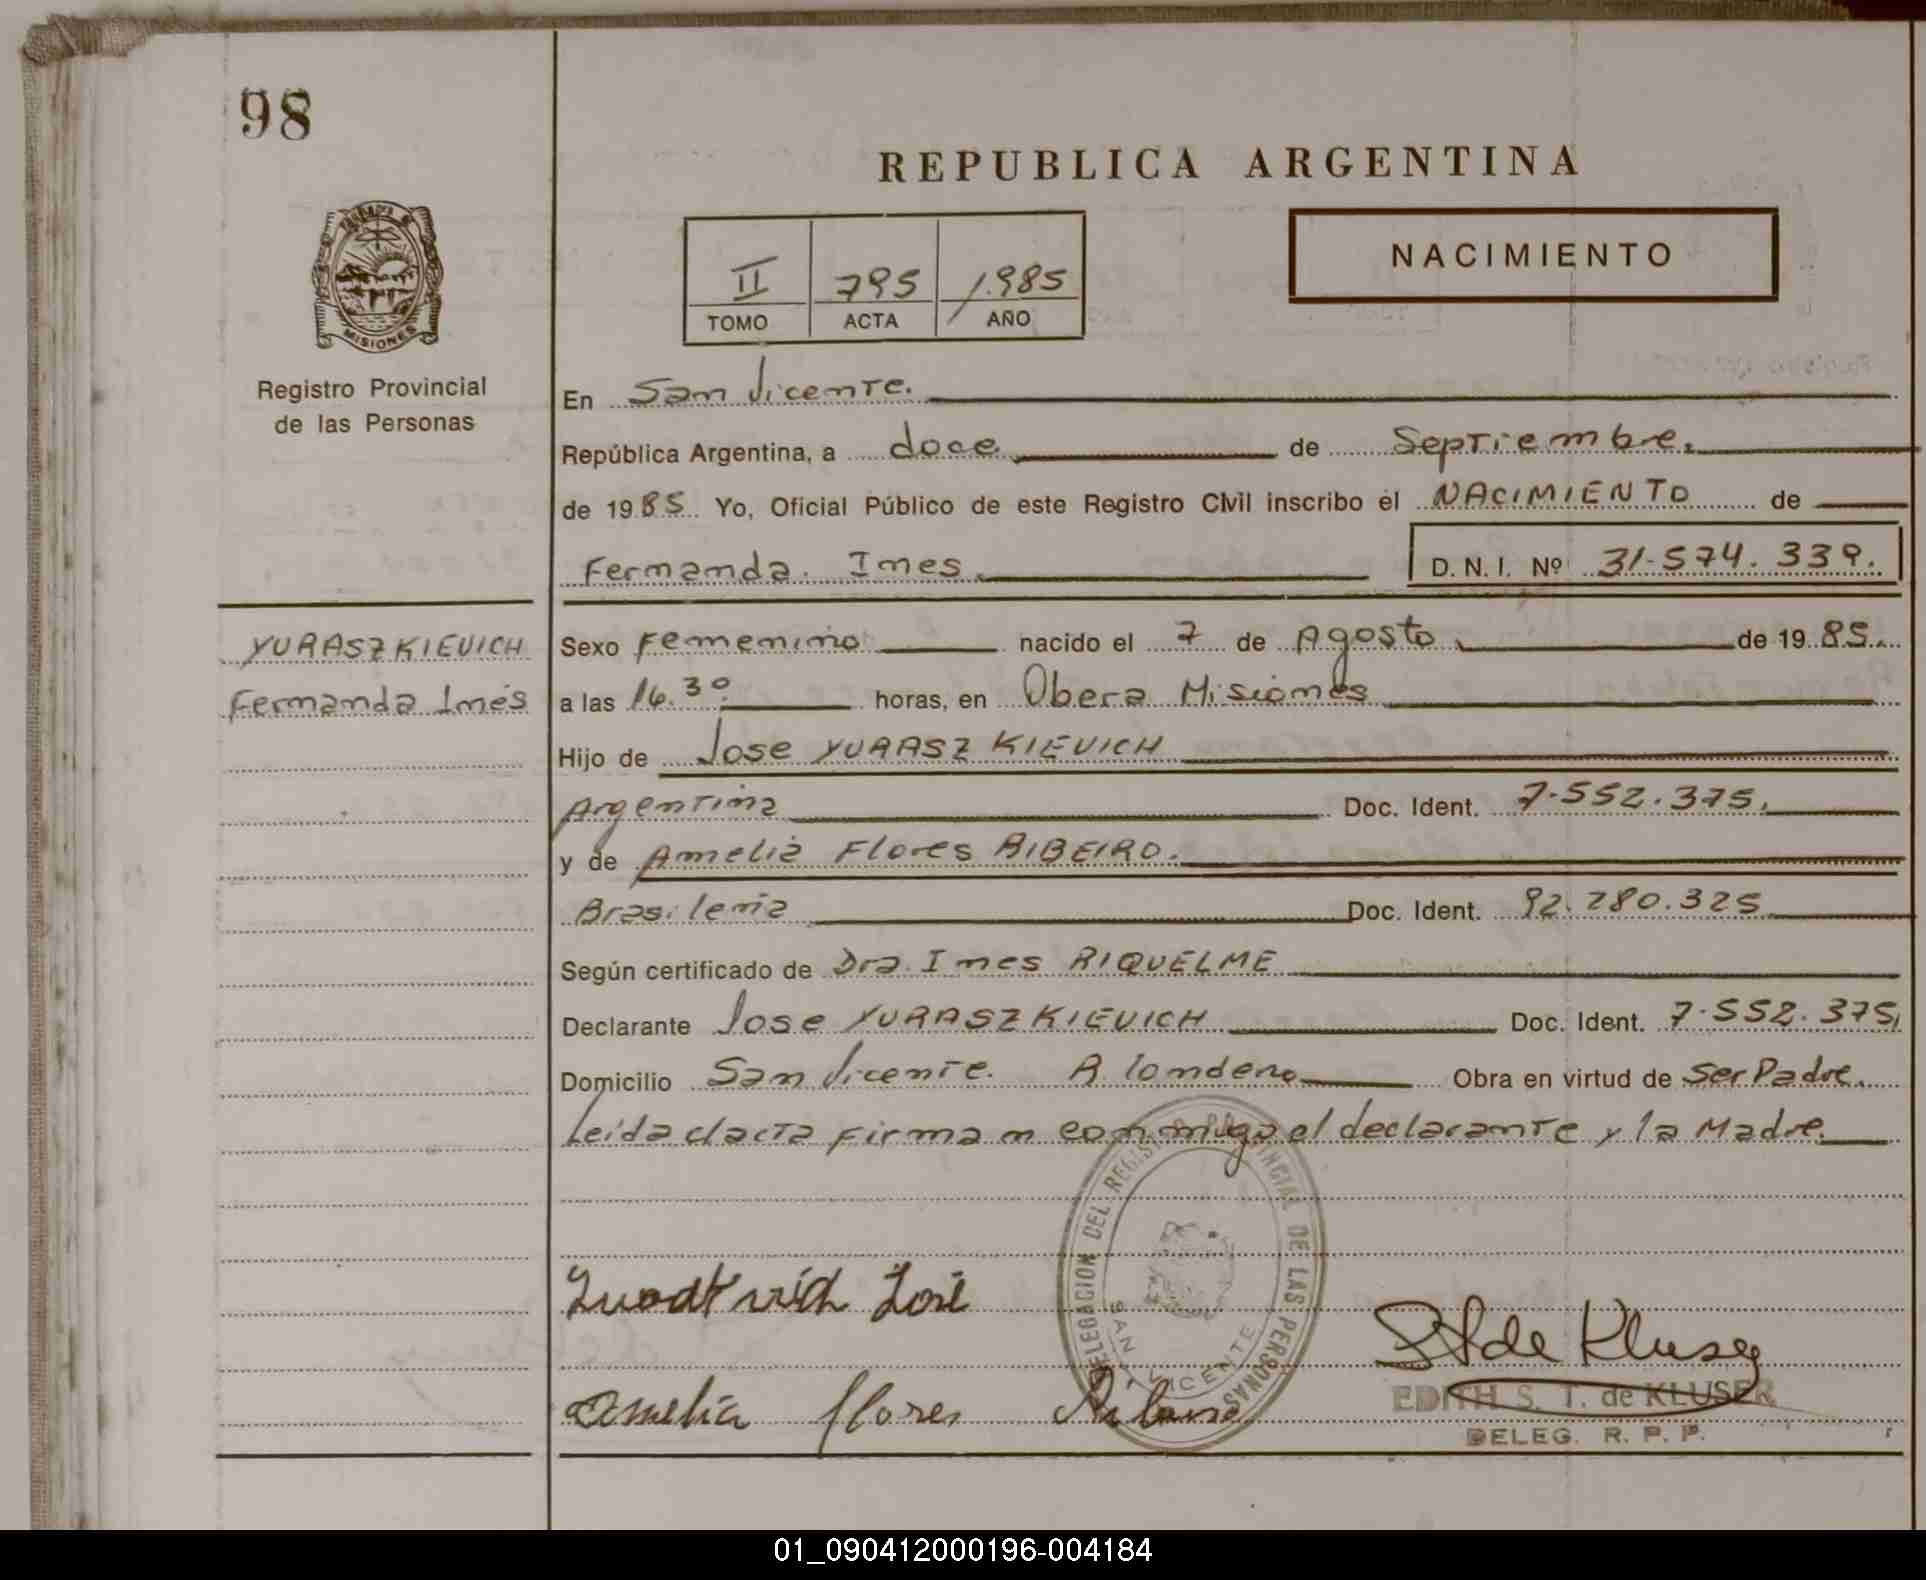 98
REPUBLICA ARGENTINA
NACIMIENTO
II 795 1.985
TOMO ACTA AÑO
MISIONES
Registro Provincial
de las Personas
En San Vicente.
República Argentina, a doce de Septiembre.
de 1985. Yo, Oficial Público de este Registro Civil inscribo el NACIMIENTO de
Fernanda. Ines. D. N. I. Nº 31.574.339.
YURASZKIEVICH
Fernanda Inés
Sexo Femenino nacido el 7 de Agosto de 1985.
a las 16.30 horas, en Obera Misiones
Hijo de Jose YURASZKIEVICH
Argentina Doc. Ident. 7.552.375.
y de Amelia Flores RIBEIRO.
Brasileña Doc. Ident. 92.280.325
Según certificado de Dra. Ines RIQUELME
Declarante Jose YURASZKIEVICH Doc. Ident. 7.552.375,
Domicilio San Vicente. Obra en virtud de ser Padre.
Leida el acta firman conmigo el declarante y la Madre.
DELEGACION DEL REGISTRO PROVINCIAL DE LAS PERSONAS
SAN VICENTE
José
Amelia flores
de Kluser
EDITH S. T. de KLUSER
DELEG. R. P. P.
01_090412000196-004184